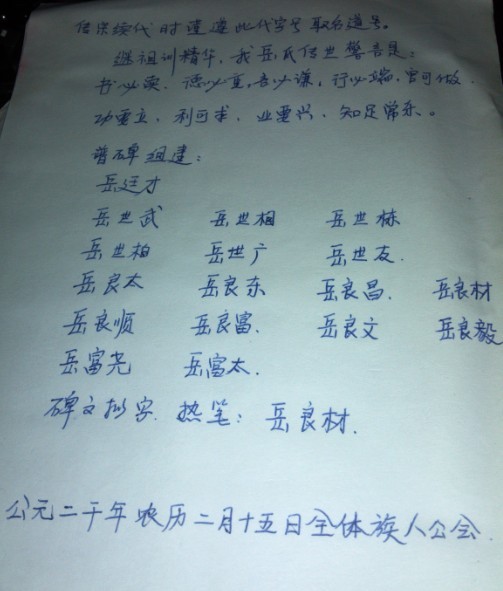 传宗续代时谨遵此代字号取名道号。
继祖训精华,我岳氏传世警言是:
书必读、德必重,言必谦,行必端,官可做
功要立,利可求,业要兴,知足常乐。
普碑组建:
岳廷才
岳世武 岳世相 岳世栋
岳世柏 岳世广 岳世友.
岳良太 岳良东 岳良昌. 岳良材
岳良顺 岳良富. 岳良文 岳良毅
岳富尧 岳富太.
碑文拟字. 热笔: 岳良材.
公元二千年农历二月十五日全体族人公会.